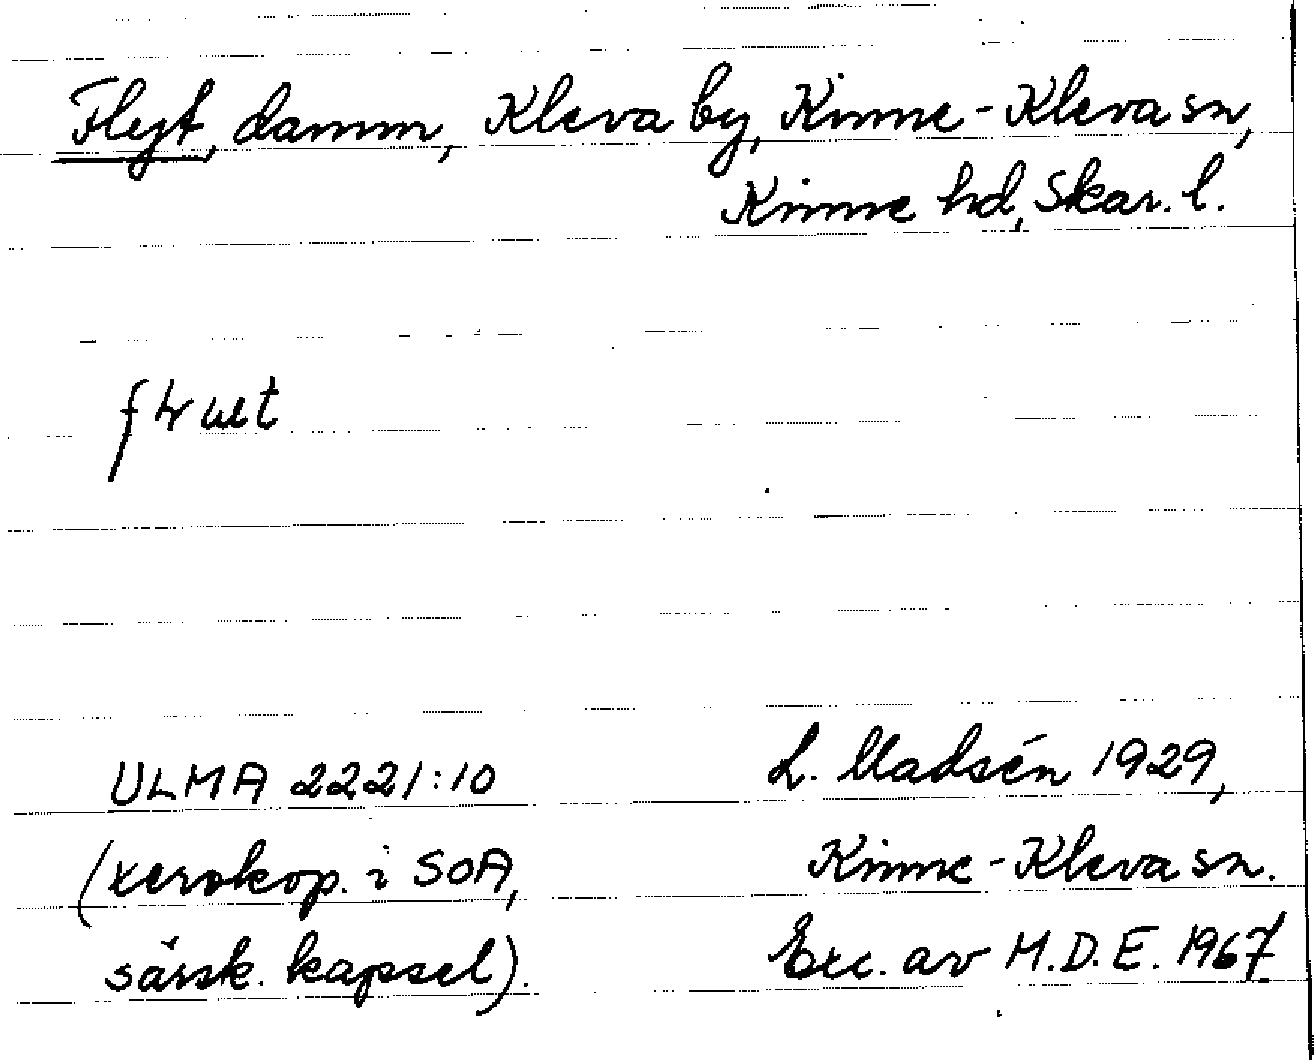 Fleyt, damm, Kleva by, Kinne-Kleva sn,
Kinne hd, Skar. l.
ULMA 2221:10
(xerokop. i SOA,
särsk. kapsel).
L. Madsén 1929,
Kinne-Kleva sn.
Exc. av M.D.E. 1967